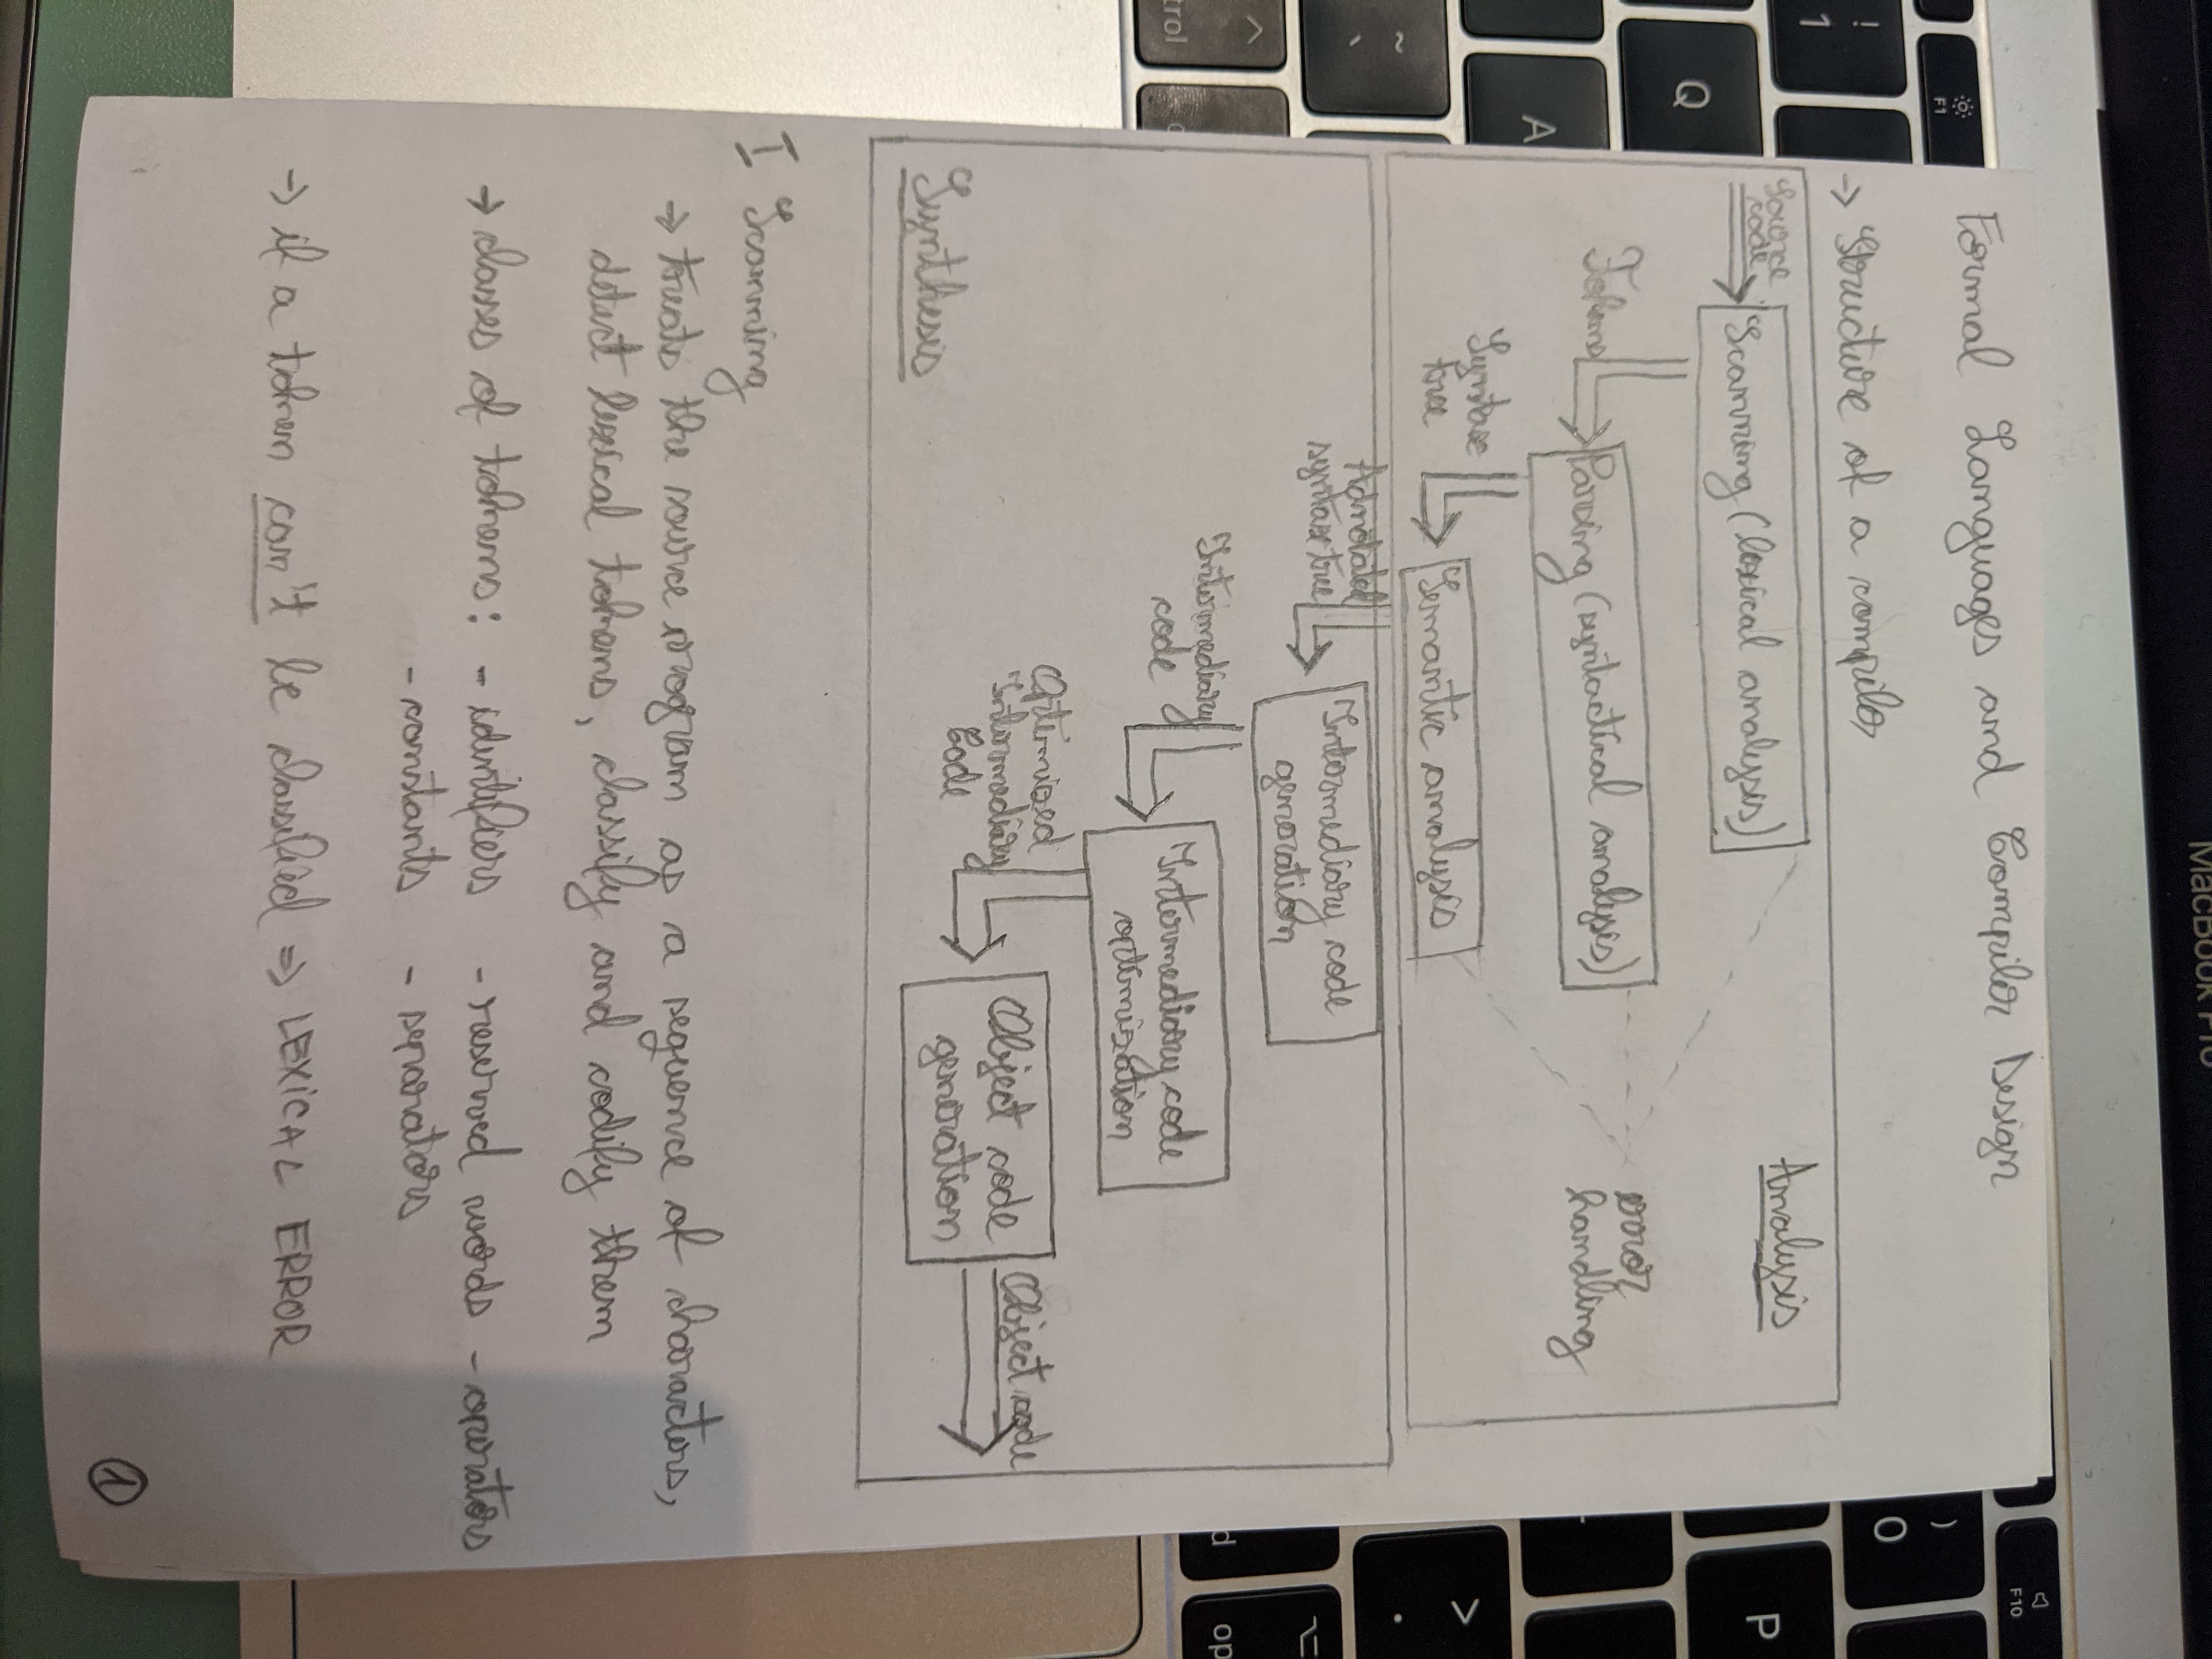 Formal Languages and Compiler Design
-> Structure of a compiler
Analysis
Source
code
Scanning (lexical analysis)
Tokens
Parsing (syntactical analysis)
error
handling
Syntax
tree
Semantic analysis
Adnotated
syntax tree
Intermediary code
generation
Intermediary
code
Intermediary code
optimization
Optimized
intermediary
Code
Object code
generation
Object code
Synthesis
I Scanning
-> treats the source program as a sequence of characters,
detect lexical tokens, classify and codify them
-> classes of tokens: - identifiers - reserved words - operators
- constants - separators
-> if a token can't be classified => LEXICAL ERROR
1
MacBook Pro
! 1
F1
~ `
Q
A
^
trol
) 0
F10
P
> .
d
⌥
op